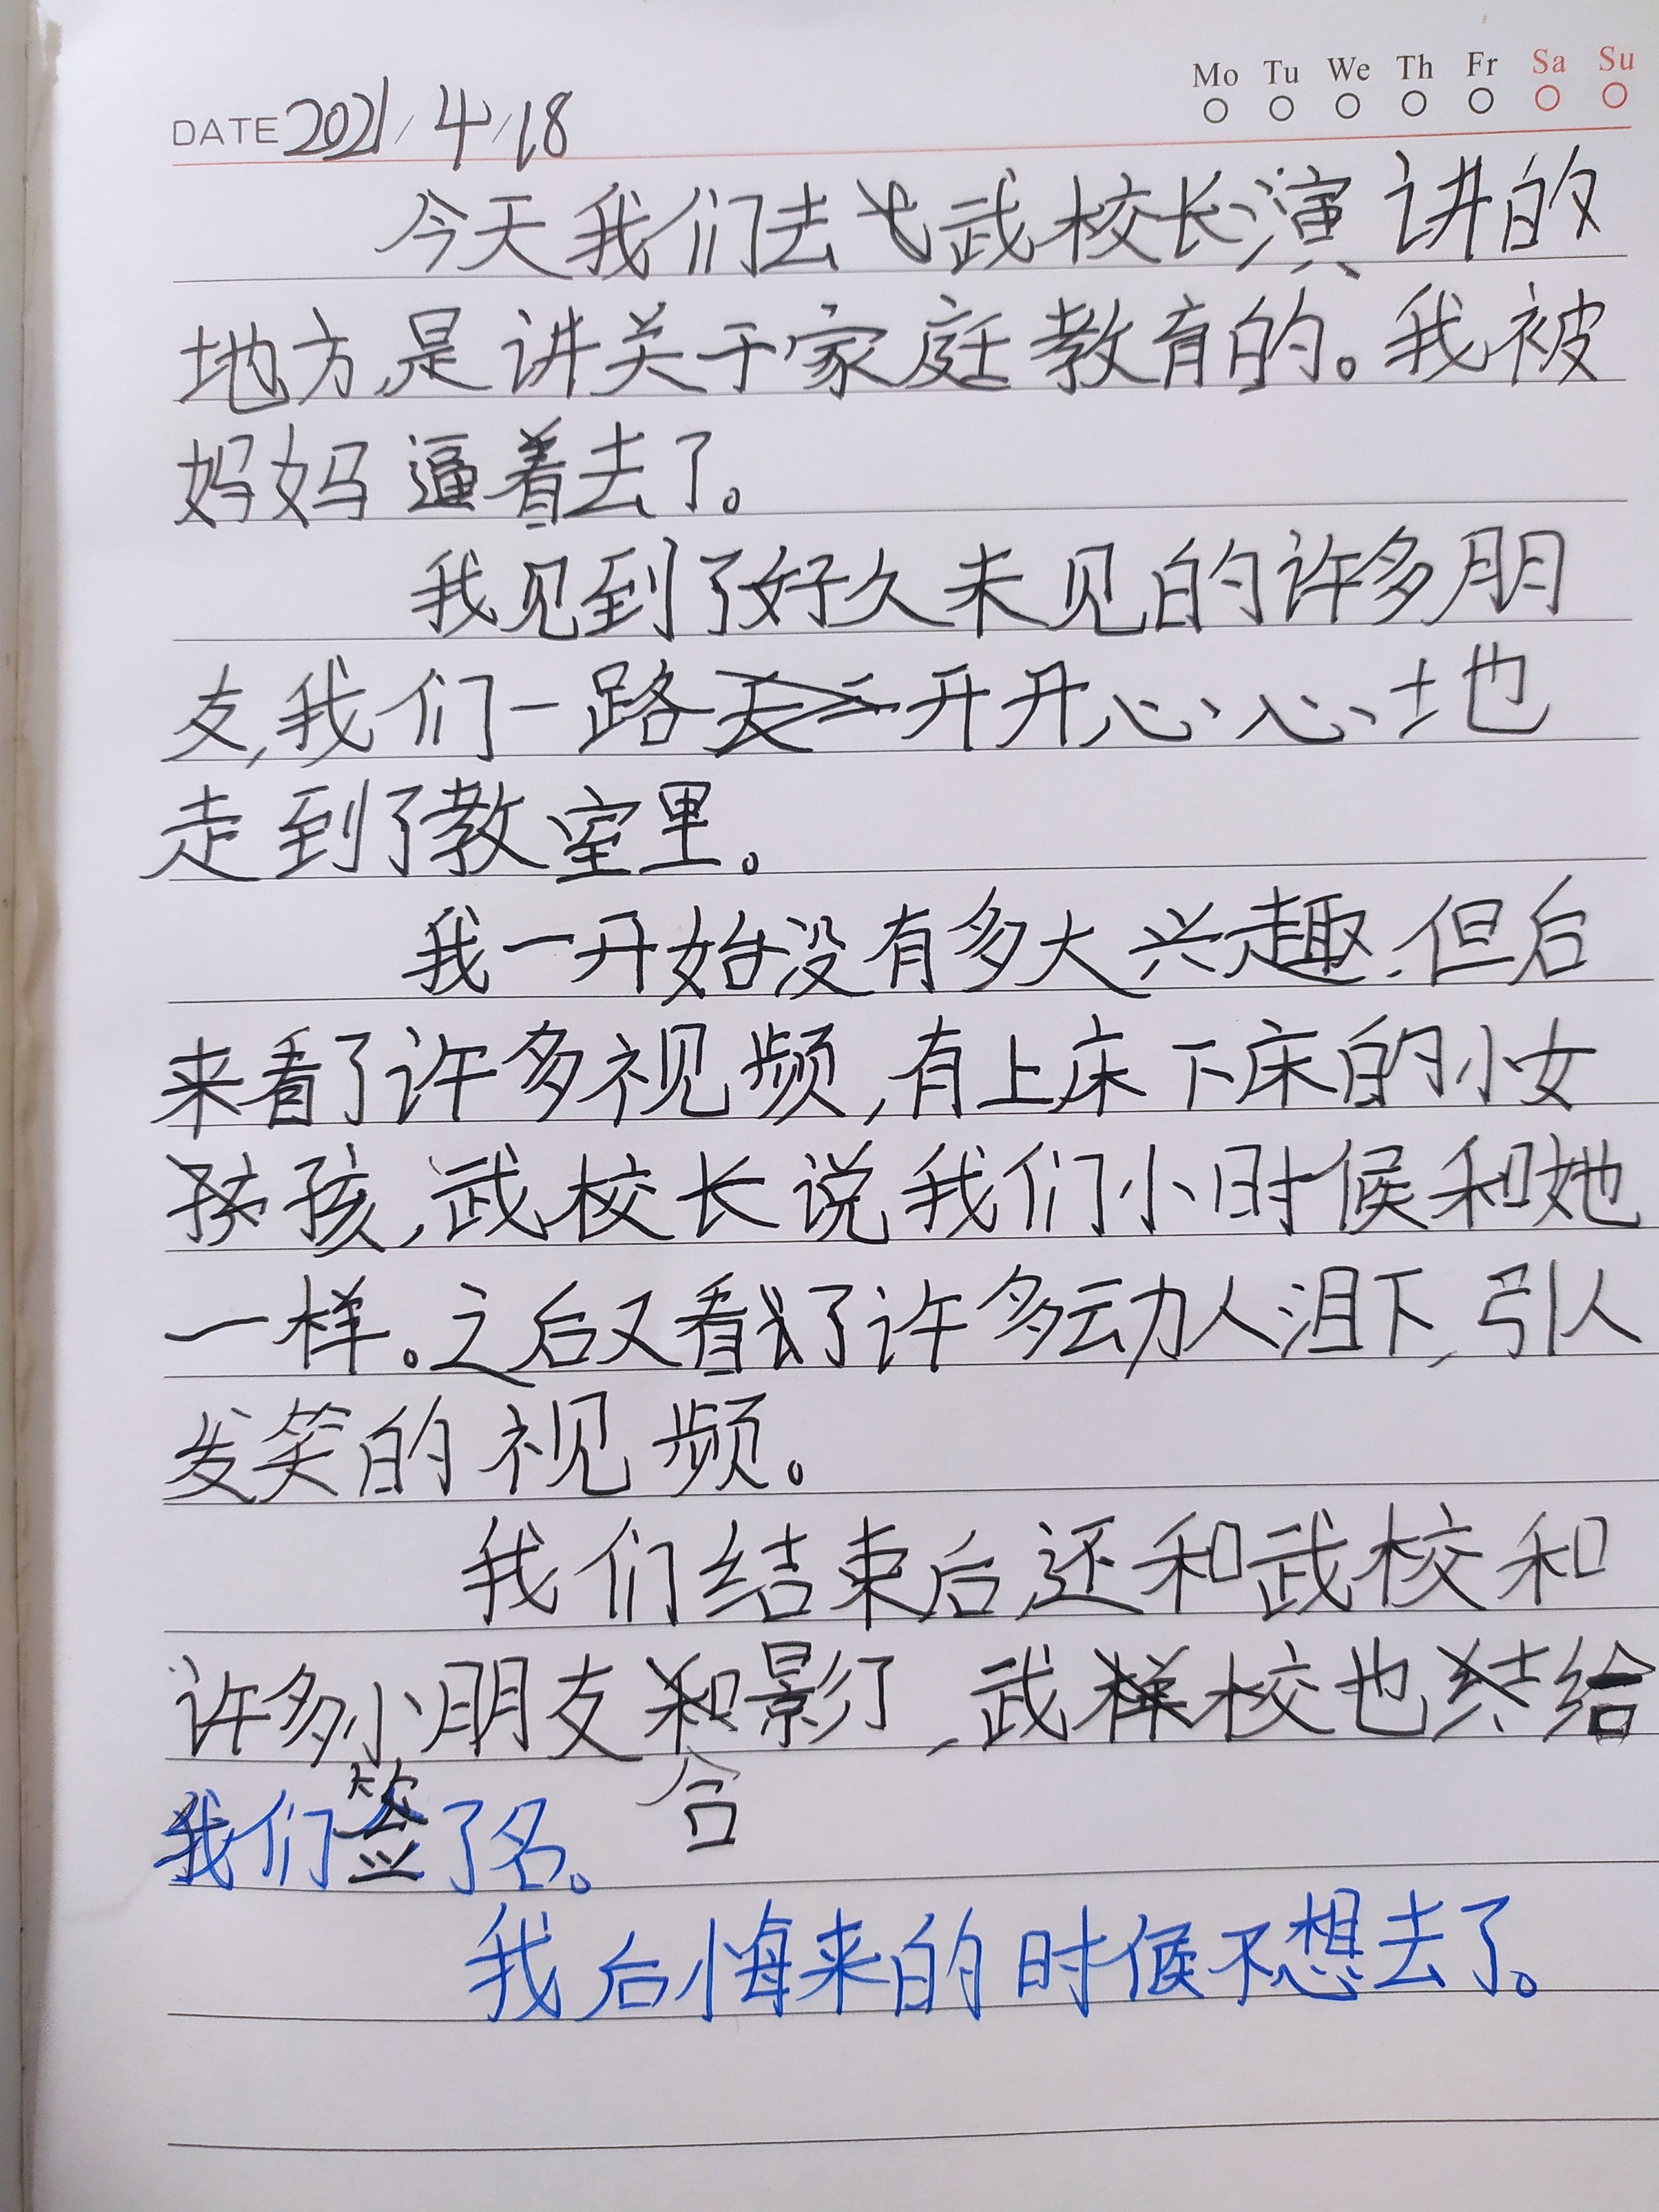 Mo Tu We Th Fr Sa Su
DATE 2021/4/18
今天我们去武校长演讲的
地方,是讲关于家庭教育的。我被
妈妈逼着去了。
我见到了好久未见的许多朋
友,我们一路开开心心地
走到了教室里。
我一开始没有多大兴趣,但后
来看了许多视频,有上床下床的小女
孩,武校长说我们小时候和她
一样。之后又看了许多动人泪下,引人
发笑的视频。
我们结束后,还和武校和
许多小朋友合影了,武校也给
我们签了名。
我后悔来的时候不想去了。